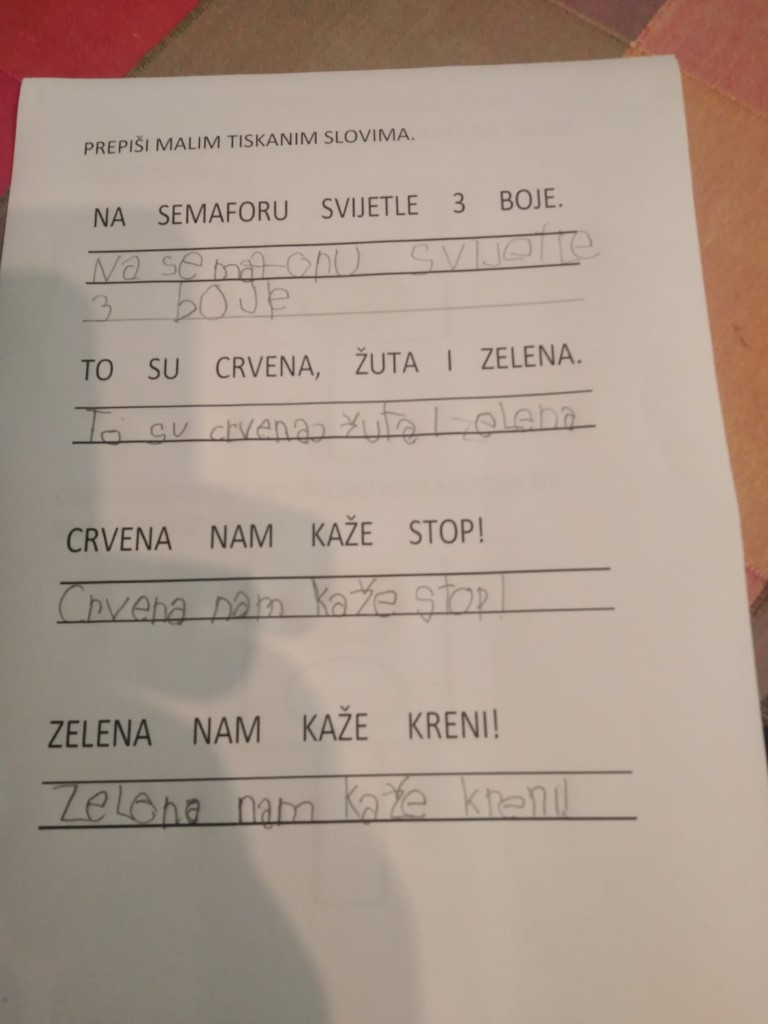 PREPIŠI MALIM TISKANIM SLOVIMA.
NA SEMAFORU SVIJETLE 3 BOJE.
Na semaforu svijetle
3 boje
TO SU CRVENA, ŽUTA I ZELENA.
To su crvena, žuta I zelena
CRVENA NAM KAŽE STOP!
Crvena nam kaže stop!
ZELENA NAM KAŽE KRENI!
Zelena nam kaže kreni!